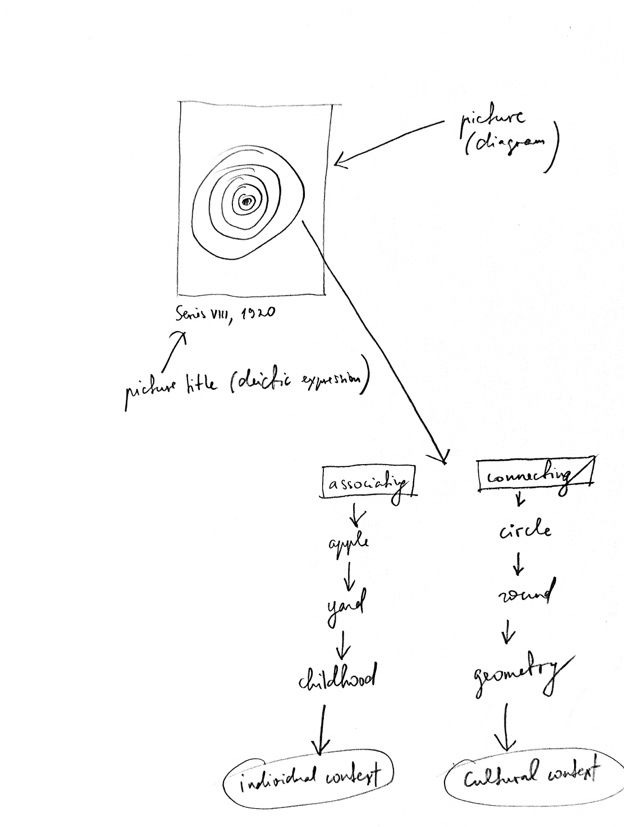 picture
(diagram)
Series VIII, 1920
picture title (deictic expression)
associating
connecting
apple
circle
yard
round
childhood
geometry
individual context
Cultural context